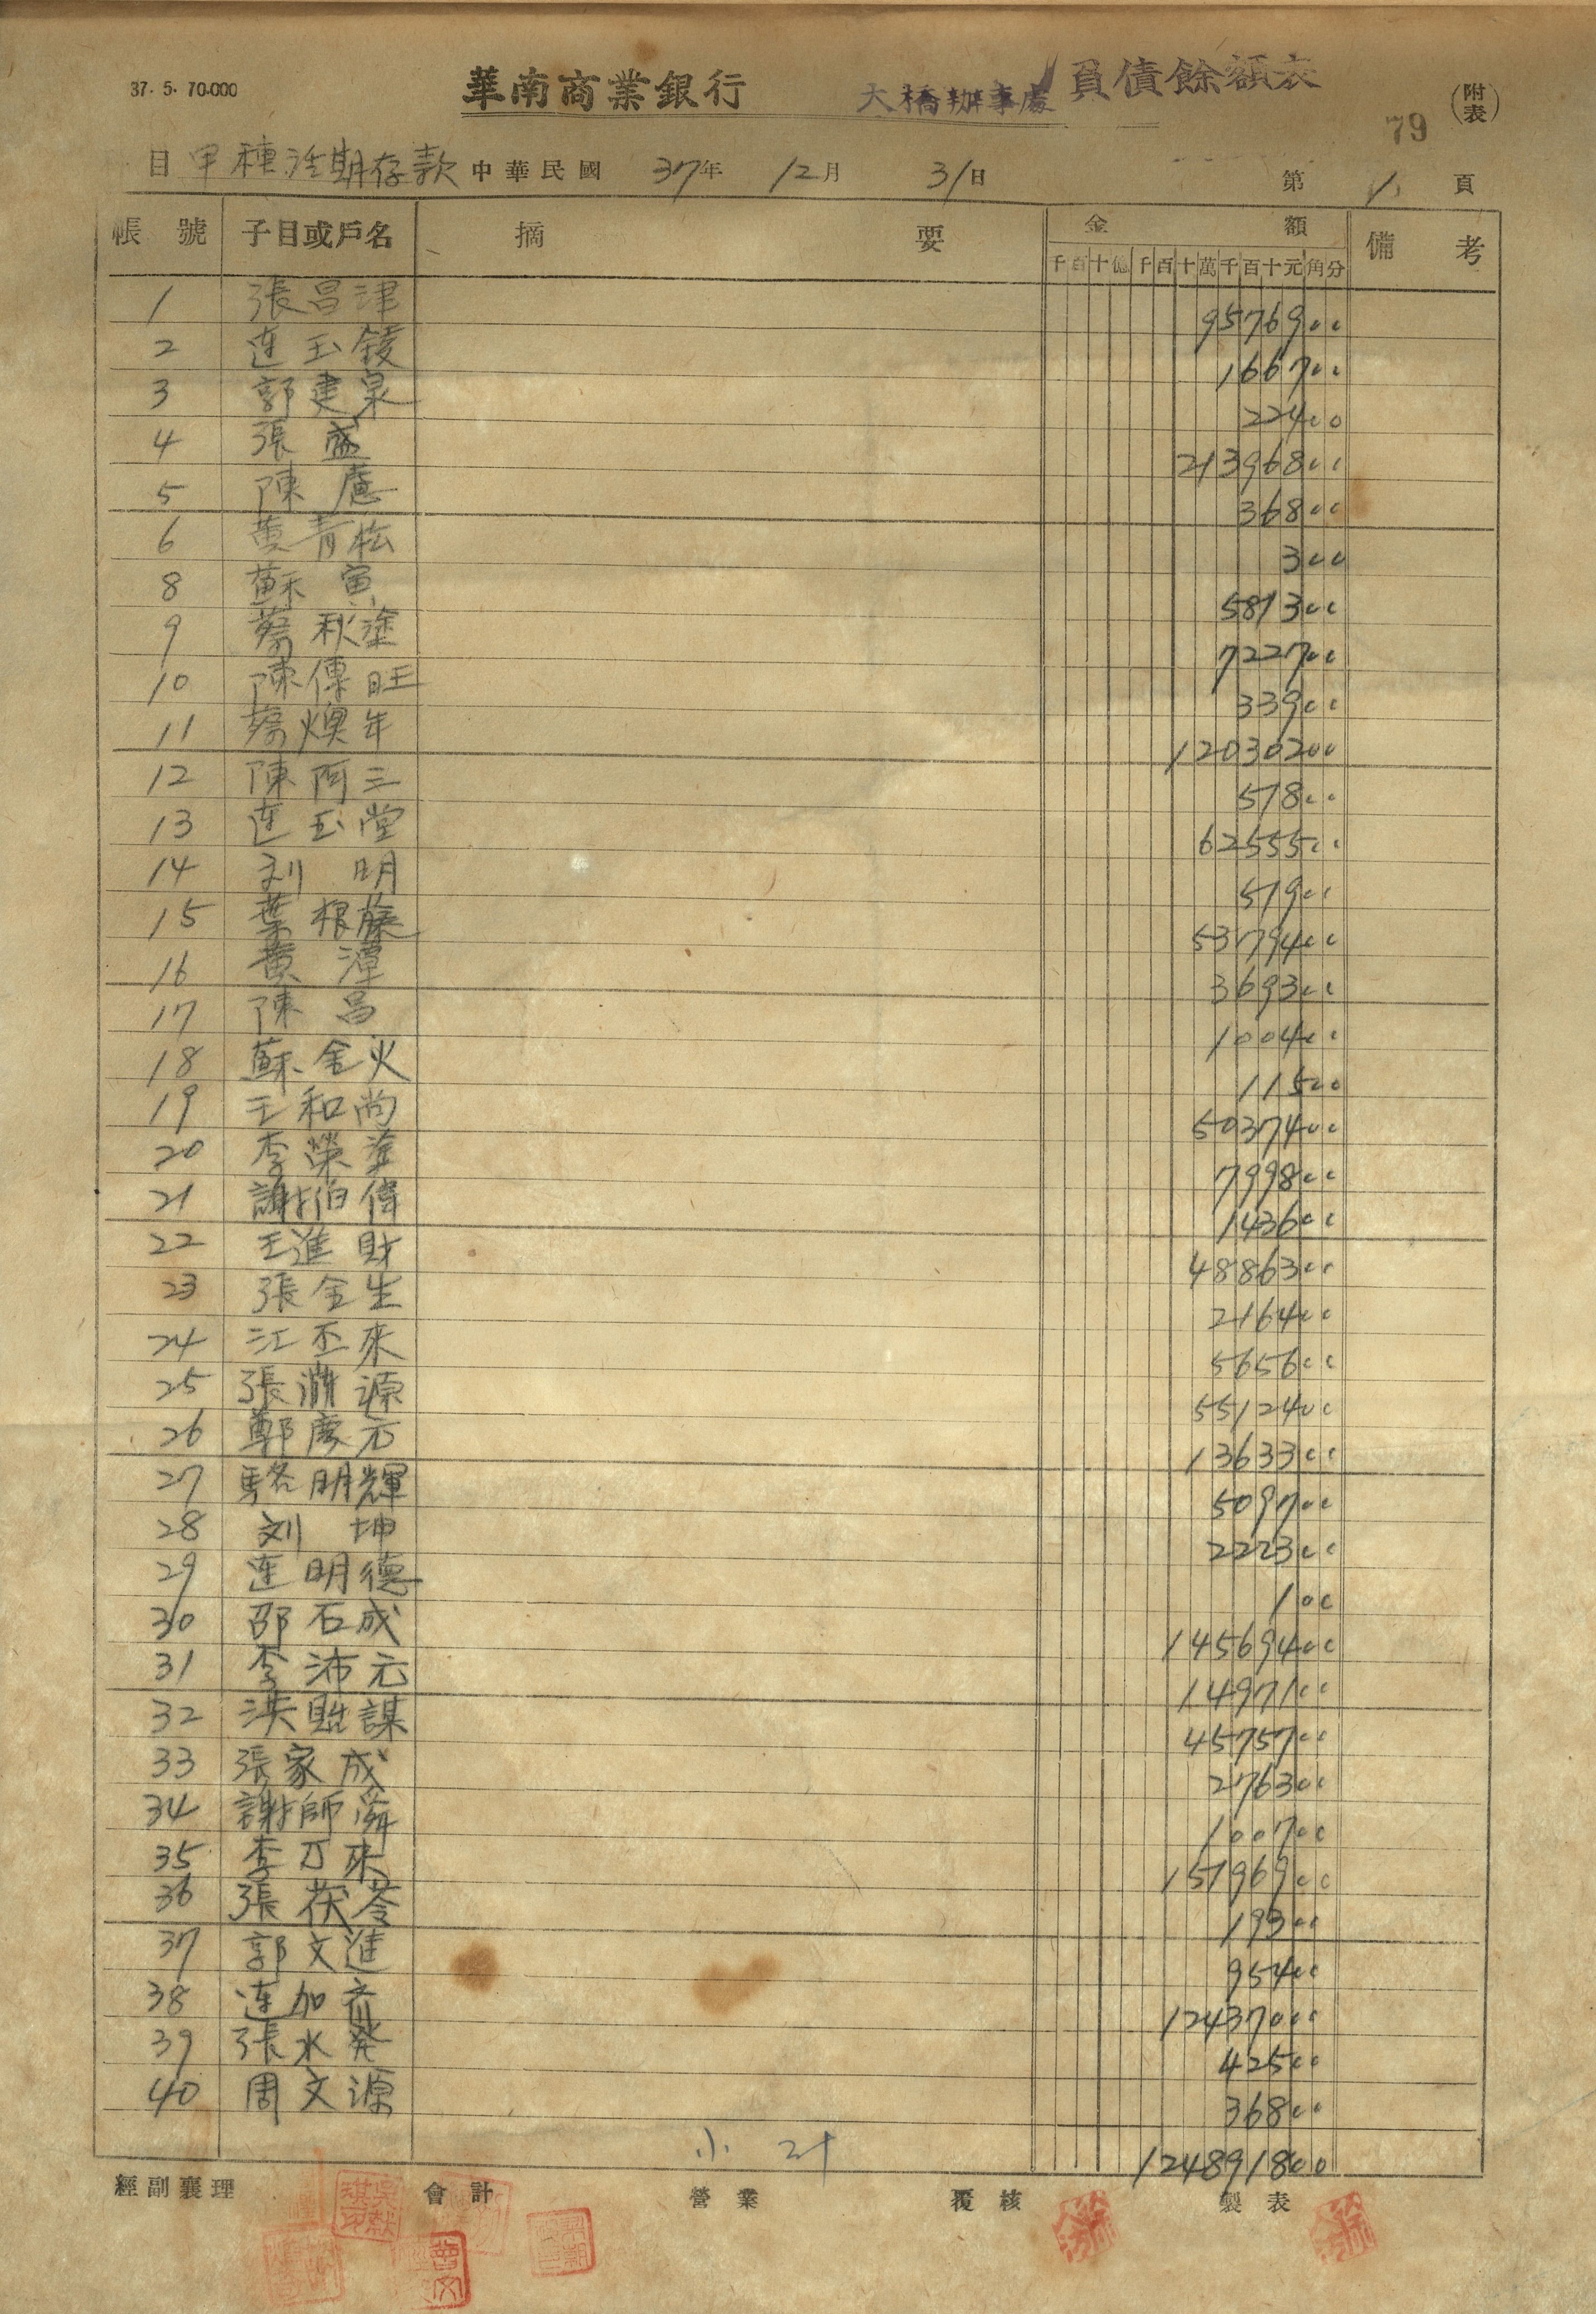 37. 5. 70.000
華南商業銀行 大橋辦事處 負債餘額表 (附表)
79
目 甲種活期存款 中華民國 37年 12月 31日 第 1 頁
帳號 子目或戶名 摘要 金額 備考
千百十億千百十萬千百十元角分
1 張昌津 9576900
2 連玉錂 166700
3 郭建泉 22400
4 張盛 21396800
5 陳應 36800
6 黃青松 300
8 蘇寅 581300
9 蔡秋塗 722700
10 陳傳旺 33900
11 蔡煥年 12030200
12 陳阿三 57800
13 連玉堂 6255500
14 刘明 51900
15 葉根藤 5379400
16 黃潭 369300
17 陳昌 100400
18 蘇金火 11500
19 王和尚 5037400
20 李榮塗 799800
21 謝伯偉 143600
22 王進財 4886300
23 張金生 216400
24 江丕來 565600
25 張淵源 5512400
26 鄭慶元 1363300
27 駱明輝 509700
28 刘坤 222300
29 連明德 100
30 邵石成 14569400
31 李沛元 1497100
32 洪貽謀 4575700
33 張家成 276300
34 謝師舜 100700
35 李刀來 15196900
36 張茯苓 19300
37 郭文進 95400
38 連加齊 12437000
39 張水発 42500
40 周文源 36800
小計 124891800
經副襄理 會計 營業 覆核 製表